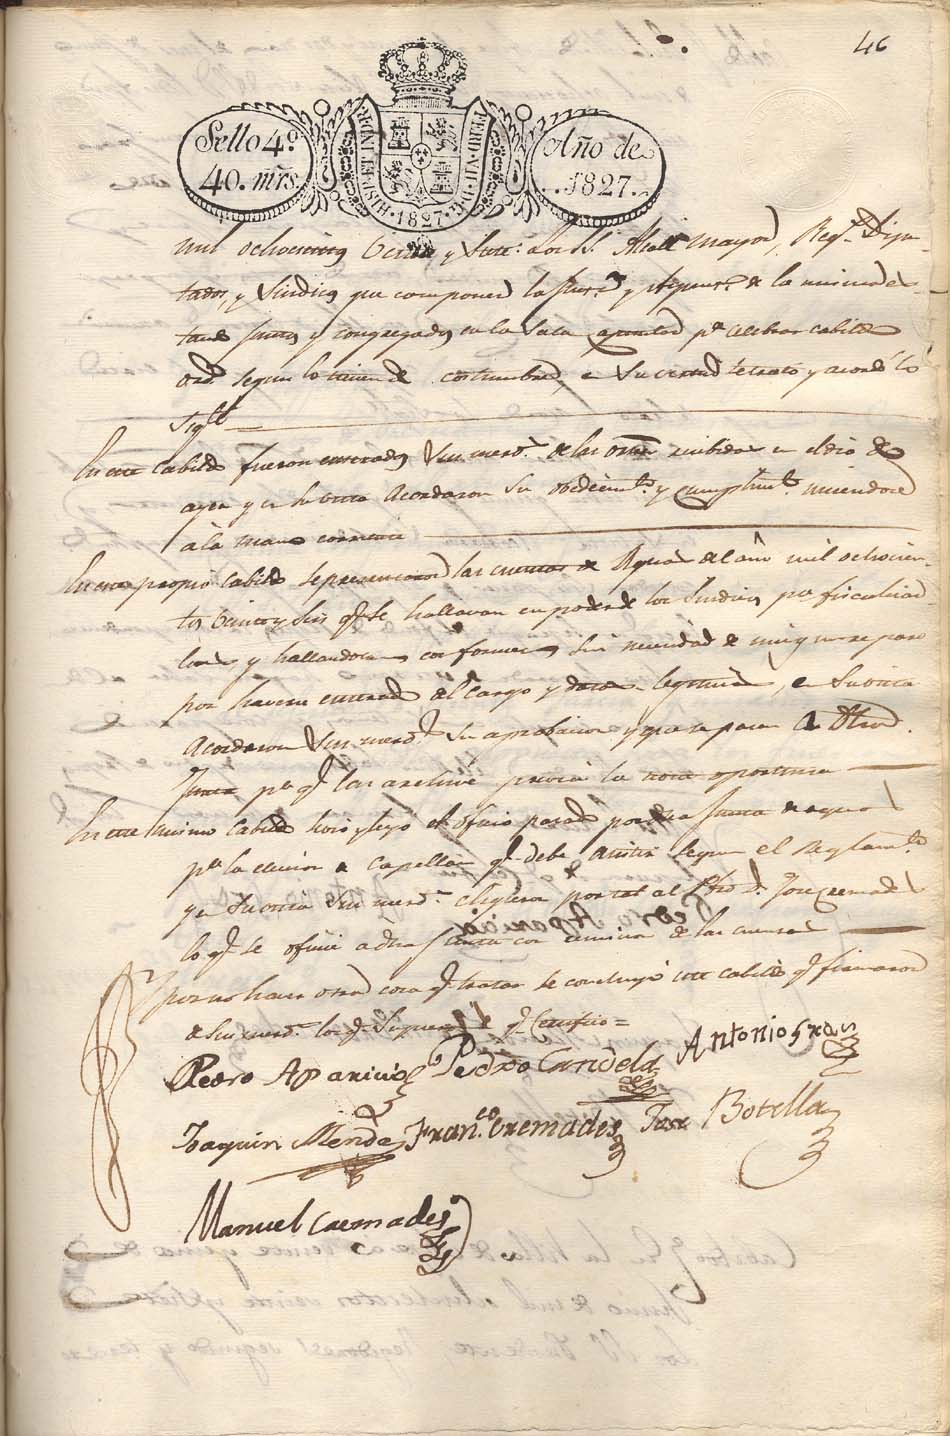 46
Sello 4º
40. mrs.
HISP. ET IND. R.
FERD. VII. D. G.
· 1827 ·
Año de
1827.
mil ochocientos veinte y siete: Los SS. Alcalde mayor, Regs. Dipu-
tados, y Sindicos que componen la Justª. y de la misma es
tando juntos y congregados en la Sala pª celebrar cabildo
ordº segun lo tienen de costumbre, en su virtud se trató y acordó lo
sigte
En este Cabildo fueron enterados Sus merds. de las ordes recibidas en el dia de
ayer y en su vista acordaron su obedecimto. y cumplimto. uniendose
à la mano corriente
En este propio Cabildo se presentaron las cuentas de Aguas del año mil ochocien
tos veinte y seis qe. se hallavan en poder de los Sindicos pª fiscalizar
las y hallandolas conformes sin necesidad de ningun reparo
por haverse el cargo y data legitima, en su vista
Acordaron Sus merds. su aprobacion y que se pasen a dha.
Junta pª qe. las archive previa la nota oportuna
En este mismo Cabildo se leyo el oficio pasado por la Junta de aguas
pª la eleccion de Capellan qe. debe asistir segun el Reglamto.
y en su vista Sus merds. eligieron por tal al Pbro. Dn. Jose Cremades
lo qe. se oficie a dha Junta con remision de las cuentas
y por no haver otra cosa qe. tratar se concluyó este cabildo qe. firmaron
de Sus merds. los qe. Supieron de qe. Certifico =
Pedro Aparicio Pedro Candela Antonio
Joaquin Franco. Cremades Jose Botella
Manuel Cremades